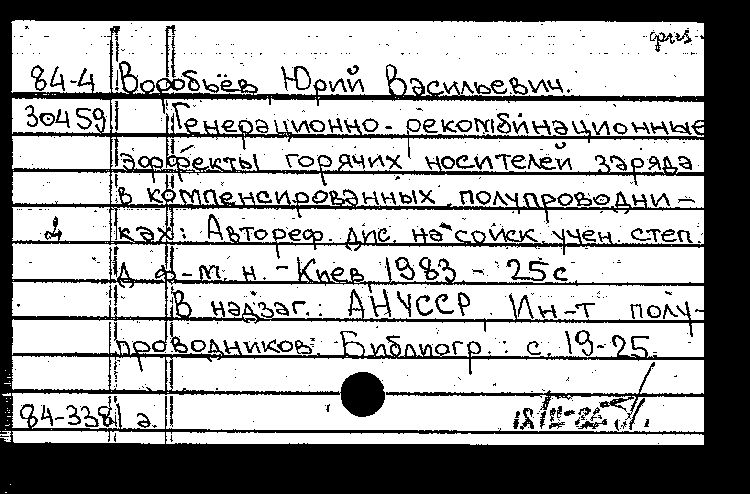 84-4 Воробьёв, Юрий Васильевич.
30459 Генерационно-рекомбинационные
эффекты горячих носителей заряда
в компенсированных полупроводни-
ках: Автореф. дис. на соиск. учен. степ.
д. ф.-м. н. - Киев, 1983 - 25 с.
В надзаг.: АН УССР, Ин-т полу-
проводников. Библиогр.: с. 19-25.
84-3381 а